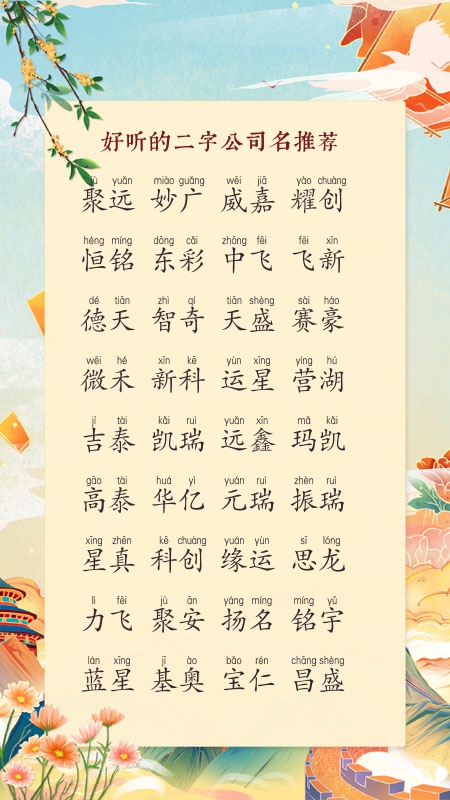 好听的二字公司名推荐
jù yuǎn miào guǎng wēi jiā yào chuàng
聚远 妙广 威嘉 耀创
héng míng dōng cǎi zhōng fēi fēi xīn
恒铭 东彩 中飞 飞新
dé tiān zhì qí tiān shèng sài háo
德天 智奇 天盛 赛豪
wēi hé xīn kē yùn xīng yíng hú
微禾 新科 运星 营湖
jí tài kǎi ruì yuǎn xīn mǎ kǎi
吉泰 凯瑞 远鑫 玛凯
gāo tài huá yì yuán ruì zhèn ruì
高泰 华亿 元瑞 振瑞
xīng zhēn kē chuàng yuán yùn sī lóng
星真 科创 缘运 思龙
lì fēi jù ān yáng míng míng yǔ
力飞 聚安 扬名 铭宇
lán xīng jī ào bǎo rén chāng shèng
蓝星 基奥 宝仁 昌盛